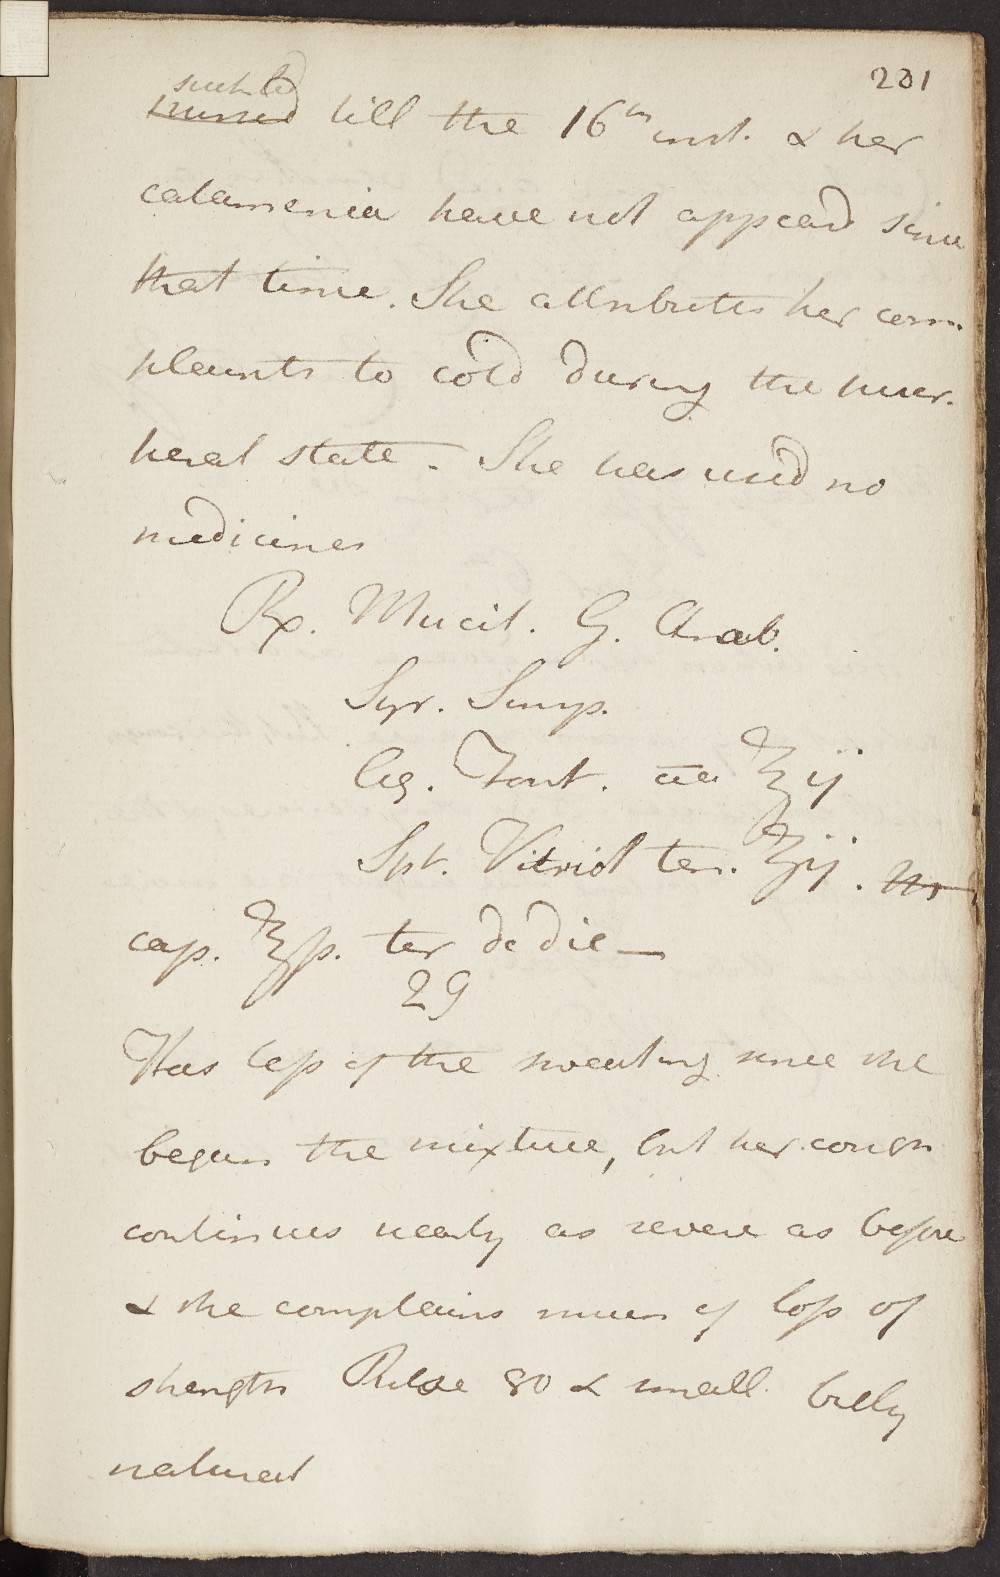 201
suckled
nursed till the 16th inst. & her
catamenia have not appeard since
that time. She attributes her com-
plaints to cold during the puer-
peral state - She has used no
medicines
Rx. Mucil. G. Arab.
Syr. Simp.
Aq. Font. aa ℥ij
Spt. Vitriol ten. ʒij.
cap. ℥ſs. ter de die —
29
Has leſs of the sweating since she
begun the mixture, but her cough
continues nearly as severe as before
& she complains much of loſs of
strength Pulse 80 & small belly
natural